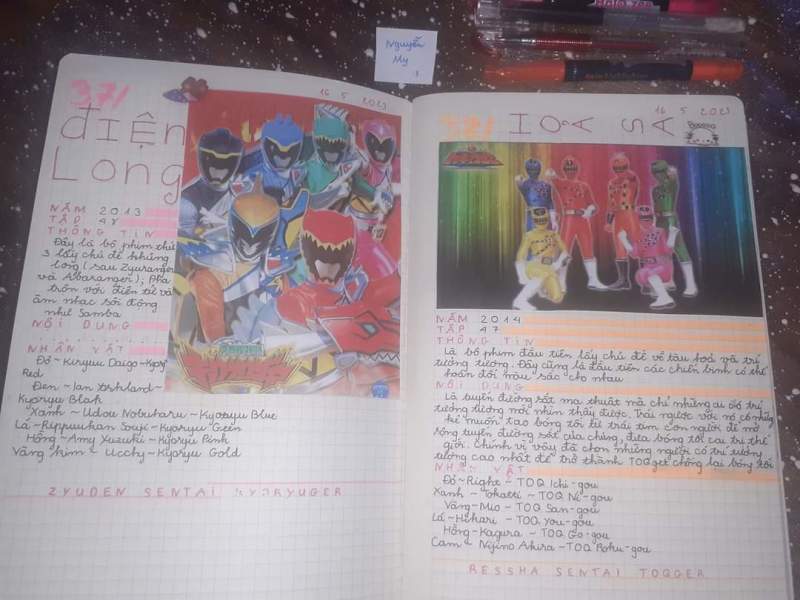 Nguyễn
My
16 5 2023
37/
ĐIỆN
Long
NĂM 2013
TẬP 48
THÔNG TIN
Đây là bộ phim thứ
3 lấy chủ đề khủng
long (sau Zyuranger
và Abaranger); Pha
trộn với điện tử và
âm nhạc sôi động
như Samba
NỘI DUNG
NHÂN VẬT
Đỏ ~ Kiryuu Daigo ~ Kyoryu
Red
Đen ~ Ian Yorkland ~
Kyoryu Blak
Xanh ~ Udou Nobuharu ~ Kyoryu Blue
Lá ~ Rippuukan Souji ~ Kyoryu Green
Hồng ~ Amy Yuzuki ~ Kyoryu Pink
Vàng kim ~ Ucchy ~ Kyoryu Gold
ZYUDEN SENTAI KYORYUGER
16 5 2023
38/
HOẢ SA
NĂM 2014
TẬP 47
THÔNG TIN
Là bộ phim đầu tiên lấy chủ đề về tàu hoả và trí
tưởng tượng. Đây cũng là đầu tiên các chiến binh có thể
hoán đổi màu sắc cho nhau
NỘI DUNG
Là tuyến đường sắt ma thuật mà chỉ những ai có trí
tưởng tượng mới nhìn thấy được. Trái ngược với nó có những
kẻ muốn tạo bóng tối từ trái tim con người để mở
rộng tuyến đường sắt của chúng, đưa bóng tối cai trị thế
giới. Chính vì vậy đã chọn những người có trí tưởng
tượng cao nhất để trở thành TOQger chống lại bóng tối
NHÂN VẬT
Đỏ ~ Right ~ TOQ Ichi-gou
Xanh ~ Tokatti ~ TOQ Ni-gou
Vàng ~ Mio ~ TOQ San-gou
Lá ~ Hikari ~ TOQ You-gou
Hồng ~ Kagura ~ TOQ Go-gou
Cam ~ Nijino Akira ~ TOQ Roku-gou
RESSHA SENTAI TOQGER